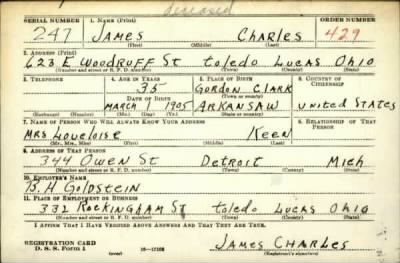 deceased
SERIAL NUMBER 1. NAME (Print) ORDER NUMBER
247 James Charles 429
(First) (Middle) (Last)
2. ADDRESS (Print)
623 E Woodruff St Toledo Lucas Ohio
(Number and street or R. F. D. number) (Town) (County) (State)
3. TELEPHONE 4. AGE IN YEARS 5. PLACE OF BIRTH 6. COUNTRY OF CITIZENSHIP
35 Gordon Clark
DATE OF BIRTH (Town or county)
March 1 1905 Arkansaw United States
(Exchange) (Number) (Mo.) (Day) (Yr.) (State or country)
7. NAME OF PERSON WHO WILL ALWAYS KNOW YOUR ADDRESS 8. RELATIONSHIP OF THAT PERSON
Mrs Loveloise Keen
(Mr., Mrs., Miss) (First) (Middle) (Last)
9. ADDRESS OF THAT PERSON
344 Owen St Detroit Mich
(Number and street or R. F. D. number) (Town) (County) (State)
10. EMPLOYER'S NAME
B. H Goldstein
11. PLACE OF EMPLOYMENT OR BUSINESS
332 Rockingham St Toledo Lucas Ohio
(Number and street or R. F. D. number) (Town) (County) (State)
I AFFIRM THAT I HAVE VERIFIED ABOVE ANSWERS AND THAT THEY ARE TRUE.
REGISTRATION CARD James Charles
D. S. S. Form 1 (over) (Registrant's signature)